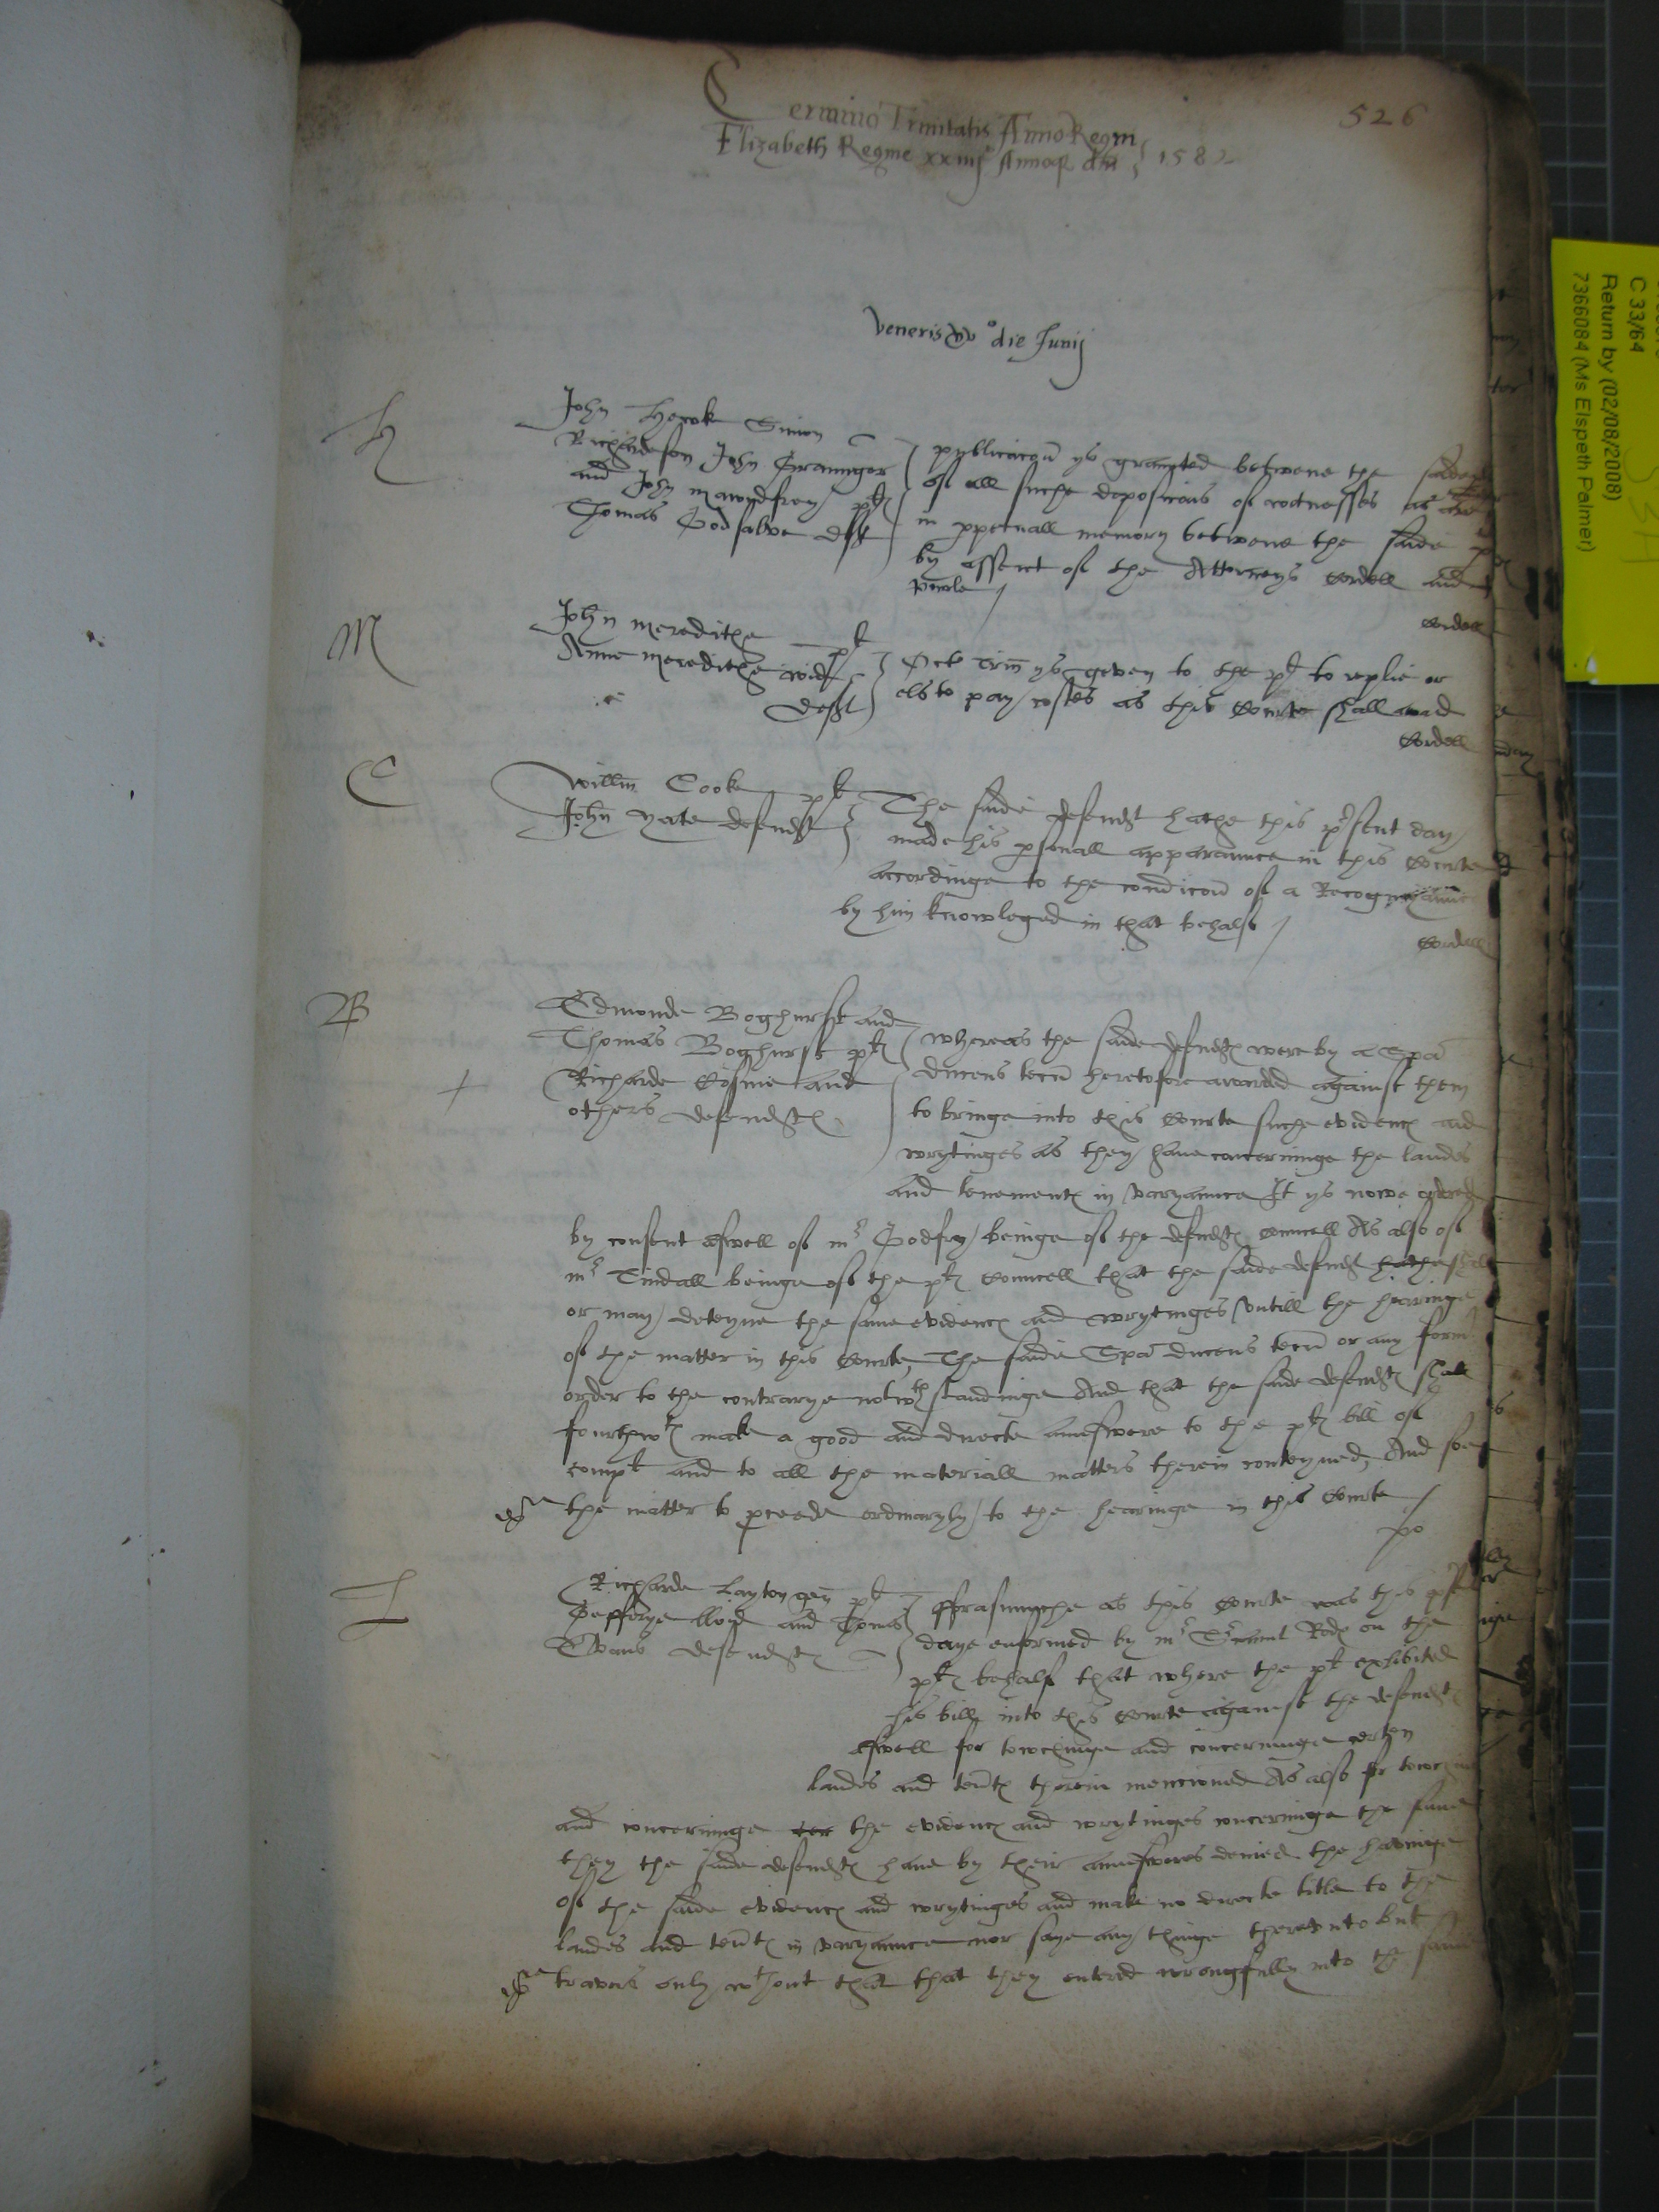 526
Termino Trinitatis Anno Regni
Elizabeth Regine xxiiij Annoq dni 1582
Veneris xv° die Junij
H
John Simon
Richardeson John Graunger
and John plt
Thomas Godsalve deft
publicacon ys graunted betwene the saide
of all suche deposicons of wytnesses as are
in ppetuall memory betwene the saide
by assent of the Attorneys Cordell and
Cordell
M
John Meredithe plt
Anne Meredithe wid
deft
Oct Trin ys geven to the plt to replie or
els to pay costes as this Courte shall award
Cordell
C
Willm Cooke plt
John Yate defendt
The saide defendt hathe this psent day
made his psonall apparaunce in this Courte
accordinge to the condicon of a Recognizaunce
by him knowleged in that behalf /
Cordell
B
Edmonde Boghurst and
Thomas Boghurst plts
Richarde and
others defendts
whereas the saide defendts were by a Spa
ducens tecu heretofore awarded against them
to bringe into this Courte suche evidences and
wrytinges as they have concerninge the landes
and tenements in varyaunce It ys nowe ordered
by consent aswell of mr Godfrey beinge of the defendts councell As also of
mr Tindall beinge of the plts councell that the saide defendts hathe shall
or may deteyne the same evidences and wrytinges untill the hearinge
of the matter in this Courte, The saide Spa ducens tecu or any form
order to the contrarye notwthstandinge And that the saide defendts shall
fourthwth make a good and directe aunswere to the plts bill of
complt and to all the materiall matters therein conteyned, And soe
the matter to pceede ordinaryly to the hearinge in this Courte /
po
L
Richarde Layton gen plt
Geffrye lloyd and Thomas
Evans defendts
fforasmuche as this Courte was this psent
daye enformed by mr Sriaunt Rodes on the
plts behalf that where the plt exhibited
his bill into this Courte against the defendts
aswell for towchinge and concerninge certen
landes and tents therein mencioned As also for towching
and concerninge cer the evidences and wrytinges concerninge the same
they the saide defendts have by their aunsweres denied the havinge
of the saide evidences and wrytinges and make no directe title to the
landes and tents in varyaunce nor saye any thinge thereunto but
travers only wthout that that they entered wrongfully into the same
C 33/64
Return by (02/08/2008)
7366084 (Ms Elspeth Palmer)